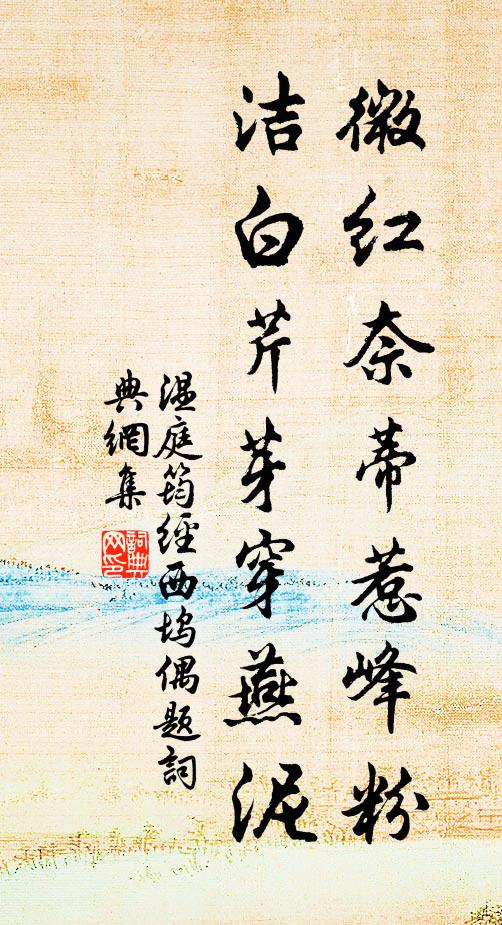 微红奈蒂惹峰粉
洁白芹芽穿燕泥
温庭筠经西坞偶题词
典網集
詞典网印